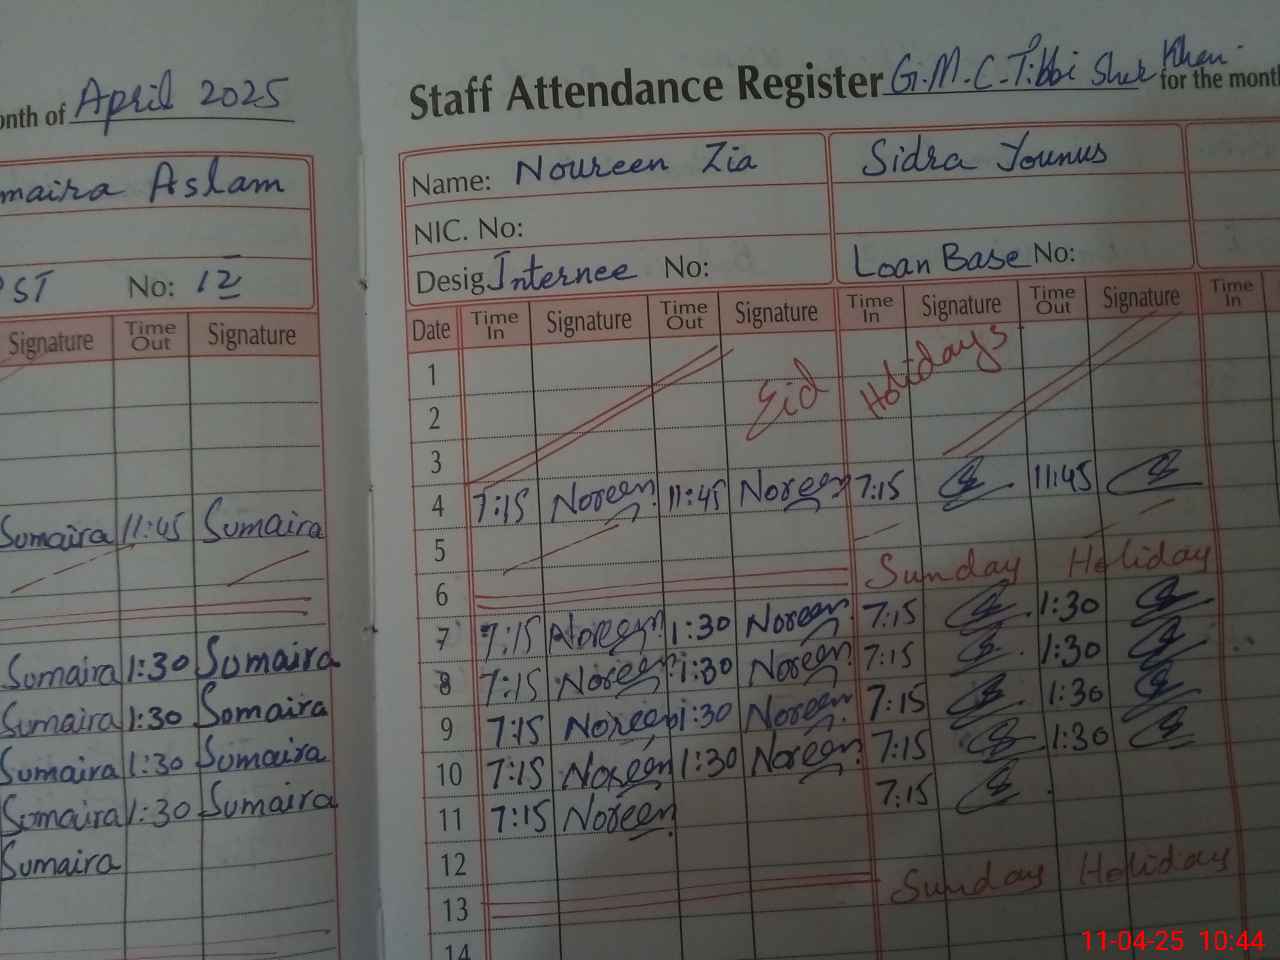 onth of April 2025
maira Aslam
PST No: 12
Signature Time Out Signature
Sumaira 11:45 Sumaira
Sumaira 1:30 Sumaira
Sumaira 1:30 Somaira
Sumaira 1:30 Sumaira
Sumaira 1:30 Sumaira
Sumaira
Staff Attendance Register G.M.C.Tibbi Sher Khan for the month
Name: Noureen Zia Sidra Younus
NIC. No:
Desig Internee No: Loan Base No:
Date Time In Signature Time Out Signature Time In Signature Time Out Signature Time In
1
2 Eid Holidays
3
4 7:15 Noreen 11:45 Noreen 7:15 11:45
5
6 Sunday Holiday
7 7:15 Noreen 1:30 Noreen 7:15 1:30
8 7:15 Noreen 1:30 Noreen 7:15 1:30
9 7:15 Noreen 1:30 Noreen 7:15 1:30
10 7:15 Noreen 1:30 Noreen 7:15 1:30
11 7:15 Noreen 7:15
12
13 Sunday Holiday
14
11-04-25 10:44